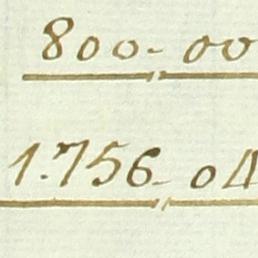 800- 00
1.756- 04